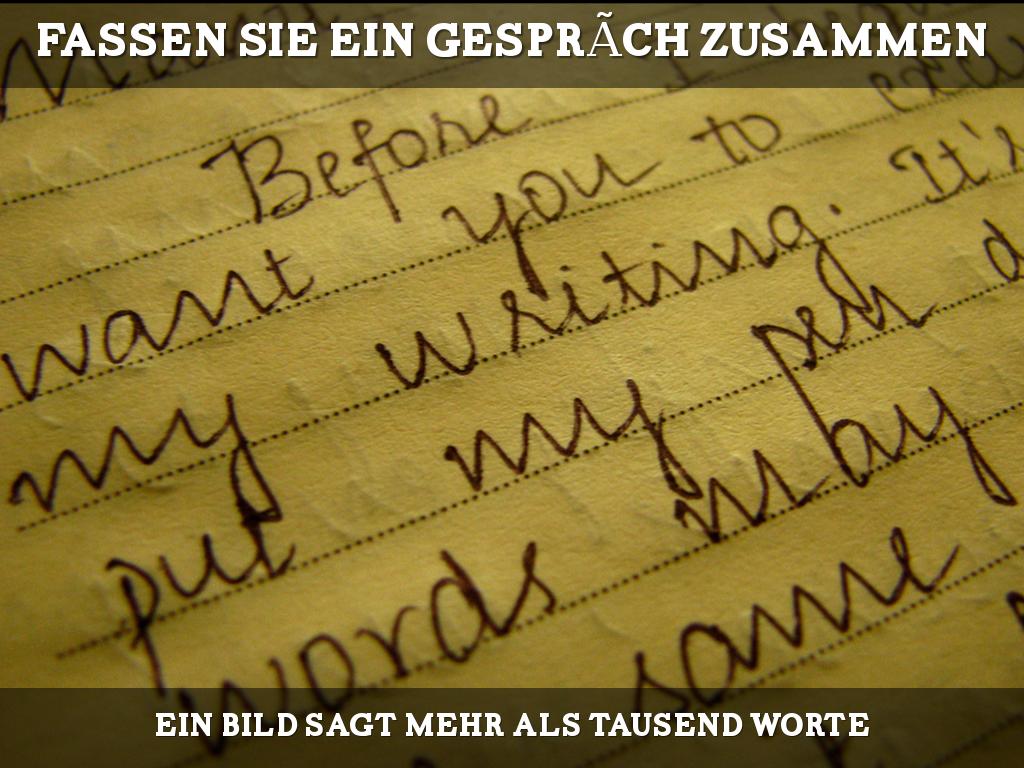 FASSEN SIE EIN GESPRÃCH ZUSAMMEN
Before I
want you to
my writing. It's
put my pen d
words may
same
EIN BILD SAGT MEHR ALS TAUSEND WORTE